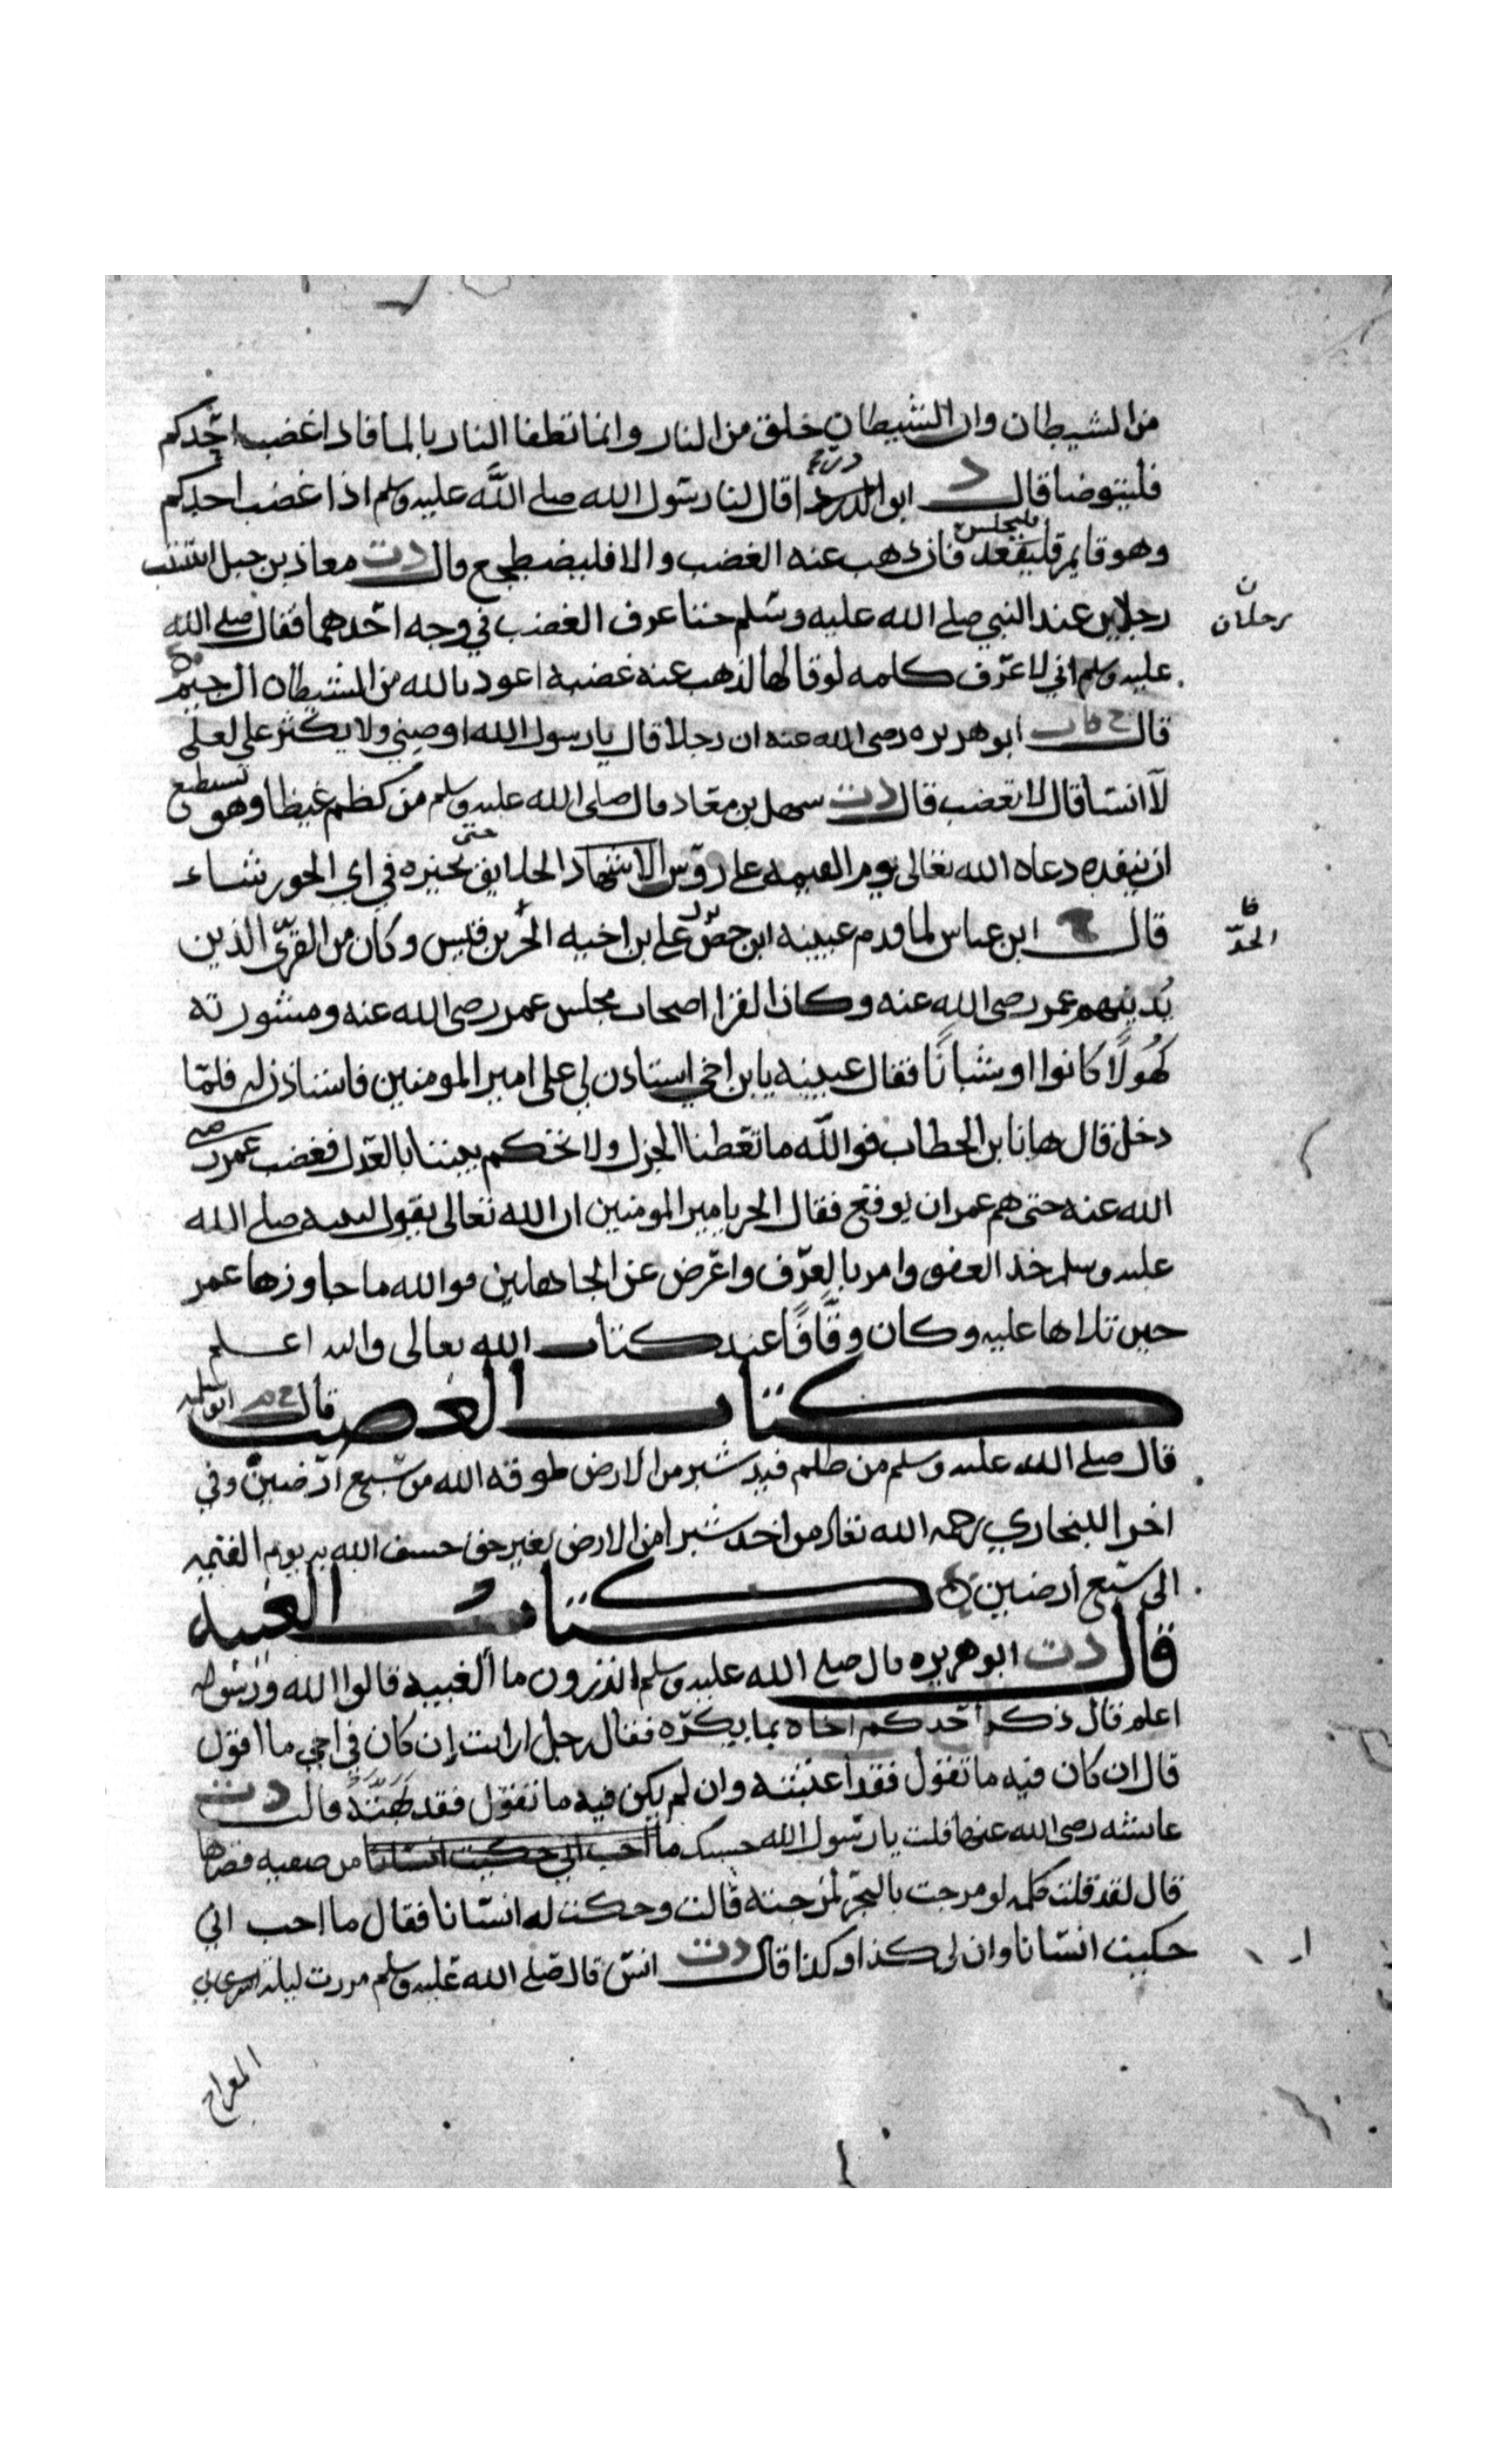 من الشيطان وان الشيطان خلق من النار وانما تطفا النار بالما فاذا غضب احدكم
فليتوضا قال د ابو الدردا قال لنا رسول الله صلى الله عليه وسلم اذا غضب احدكم
وهو قايم فليقعد فليجلس فان ذهب عنه الغضب والا فليضطجع قال دت معاذ بن جبل استب
رجلين عند النبي صلى الله عليه وسلم حتا عرف الغضب في وجه احدهما فقال صلى الله
رجلان ن
عليه وسلم اني لاعرف كلمه لو قالها لذهب عنه غضبه اعوذ بالله من الشيطان الرجيم
قال ابو هريره رضى الله عنه ان رجلا قال يا رسول الله اوصيني ولا يكثر على لعلى
لا انسا قال لا تغضب قال دت سهل بن معاذ قال صلى الله عليه وسلم من كظم غيظا وهو يستطيع
ان ينفده دعاه الله تعالى يوم القيمه على روس الاشهاد الخلايق حتى يخيره في اي الحور شاء
قال ابن عباس لما قدم عيينه ابن حصن نزل على ابن اخيه الحر بن قيس وكان من القرى الذين
يدنيهم عمر رضى الله عنه وكان القرا اصحاب مجلس عمر رضى الله عنه ومشورته
كهولا كانوا او شبانا فقال عيينه يابن اخي استاذن لي على امير المومنين فاستاذن له فلما
دخل قال ها نا بن الخطاب فوالله ما تعطنا الجزل ولا تحكم بيننا بالعدل فغضب عمر رضى
الله عنه حتى هم عمر ان يوقع فقال الحر يا مير المومنين ان الله تعالى يقول لنبيه صلى الله
عليه وسلم خذ العفو وامر بالعرف واعرض عن الجاهلين فوالله ما جاوزها عمر
حين تلاها عليه وكان وقافا عند كتاب الله تعالى والله اعلم
كتاب الغصب قال خ م ابو سلمه
قال صلى الله عليه وسلم من ظلم قيد شبر من الارض طوقه الله من سبع ارضين وفي
اخرا للبخاري رحمه الله تعالى من اخد شبرا من الارض بغير حق خسف الله به يوم القيمه
الى سبع ارضين
كتاب الغيبه
قال دت ابو هريره قال صلى الله عليه وسلم اتدرون ما الغيبه قالوا الله ورسوله
اعلم قال ذكر احدكم اخاه بما يكره فقال رجل ارايت ان كان في اخي ما اقول
قال ان كان فيه ما تقول فقد اغتبته وان لم يكن فيه ما تقول فقد بهته قال دت
عايشه رضى الله عنها قلت يا رسول الله حسبك ما احب اني حكيت انسانا من صفيه قصرها
قال لقد قلت كلمه لو مزجت بالبحر لمزجته قالت وحكيت له انسانا فقال ما احب اني
حكيت انسانا وان لى كذا وكذا قال دت انس قال صلى الله عليه وسلم مررت ليلة اسرى بي
المعراج